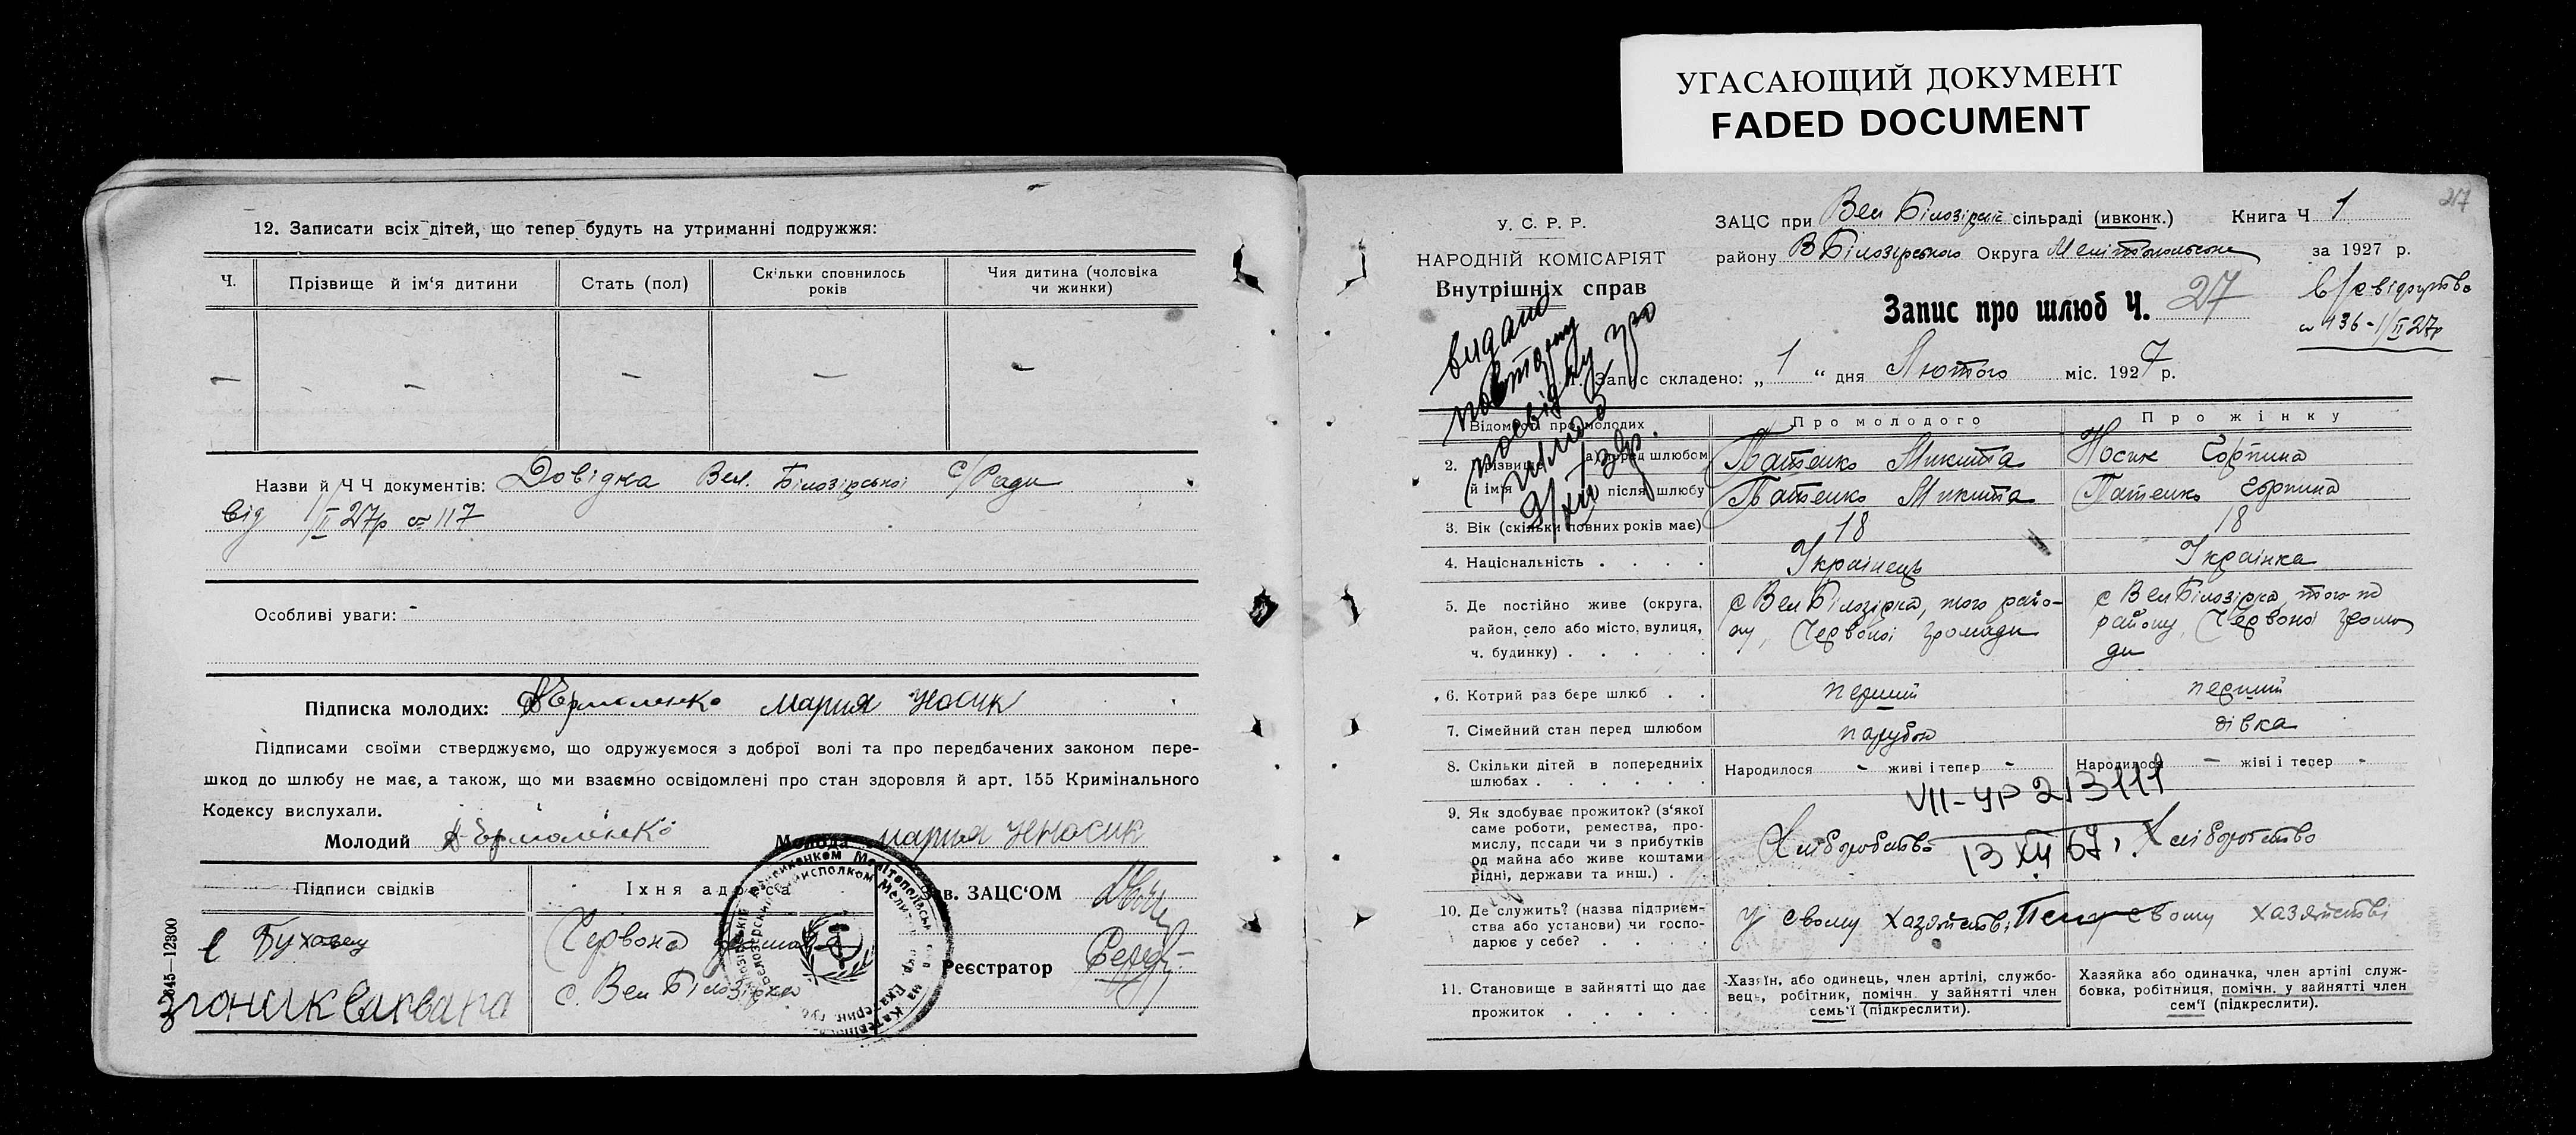 УГАСАЮЩИЙ ДОКУМЕНТ
FADED DOCUMENT
12. Записати всіх дітей, що тепер будуть на утриманні подружжя:
Ч.
Прізвище й ім'я дитини
Стать (пол)
Скільки сповнилось
років
Чия дитина (чоловіка
чи жинки)
Назви й Ч Ч документів: Довідка Вел. Білозірської С/Ради
від 1/II 27р № 117
Особливі уваги: -
Підписка молодих: Ермоленко Мария Носик
Підписами своїми стверджуємо, що одружуємося з доброї волі та про передбачених законом пере-
шкод до шлюбу не має, а також, що ми взаємно освідомлені про стан здоровля й арт. 155 Кримінального
Кодексу вислухали.
Молодий Ермоленко Молода Мария Носик
Підписи свідків
Їхня адреса
Зав. ЗАЦС'ОМ
Червона
с. Вел Білозірка
Реєстратор
845—12300
У. С. Р. Р.
НАРОДНІЙ КОМІСАРІЯТ
Внутрішніх справ
ЗАЦС при Вел Білозірській сільраді (ивконк.) Книга Ч 1
району В Білозірського Округа Мелітопольської за 1927 р.
217
Запис про шлюб Ч. 27
№ 136 - 1/II 27р
видано
повторну
посвідку про
шлюб
1. Запис складено: „ 1 “ дня Лютого міс. 1927 р.
Відомості про молодих
Про молодого
Про жінку
2. Прізвище й ім'я
а) перед шлюбом
Патенко Микита
Носик Горпина
) після шлюбу
Патенко Микита
Патенко Горпина
3. Вік (скільки повних років має)
18
18
4. Національність . . . .
Українець
Українка
5. Де постійно живе (округа,
район, село або місто, вулиця,
ч. будинку) . . . . .
с Вел Білозірка, того райо-
ну, Червоної громади
с Вел Білозірка, того
району, Червоної грома
ди
6. Котрий раз бере шлюб . .
перший
перший
7. Сімейний стан перед шлюбом
парубок
дівка
8. Скільки дітей в попередніх
шлюбах . . . . . .
Народилося - живі і тепер -
Народилося - живі і тепер -
VII-УР 213111
13 XII 67г.
9. Як здобуває прожиток? (з'якої
саме роботи, ремества, про-
мислу, посади чи з прибутків
од майна або живе коштами
рідні, держави та инш.) .
Хліборобство
Хліборобство
10. Де служить? (назва підприєм-
ства або установи) чи госпо-
дарює у себе? . . . .
У свому хазяйстві
свому хазяйстві
11. Становище в зайнятті що дає
прожиток . . . . .
Хазяїн, або одинець, член артілі, службо-
вець, робітник, помічн. у зайнятті член
семь'ї (підкреслити).
Хазяйка або одиначка, член артілі служ-
бовка, робітниця, помічн. у зайнятті член
сем'ї (підкреслити).